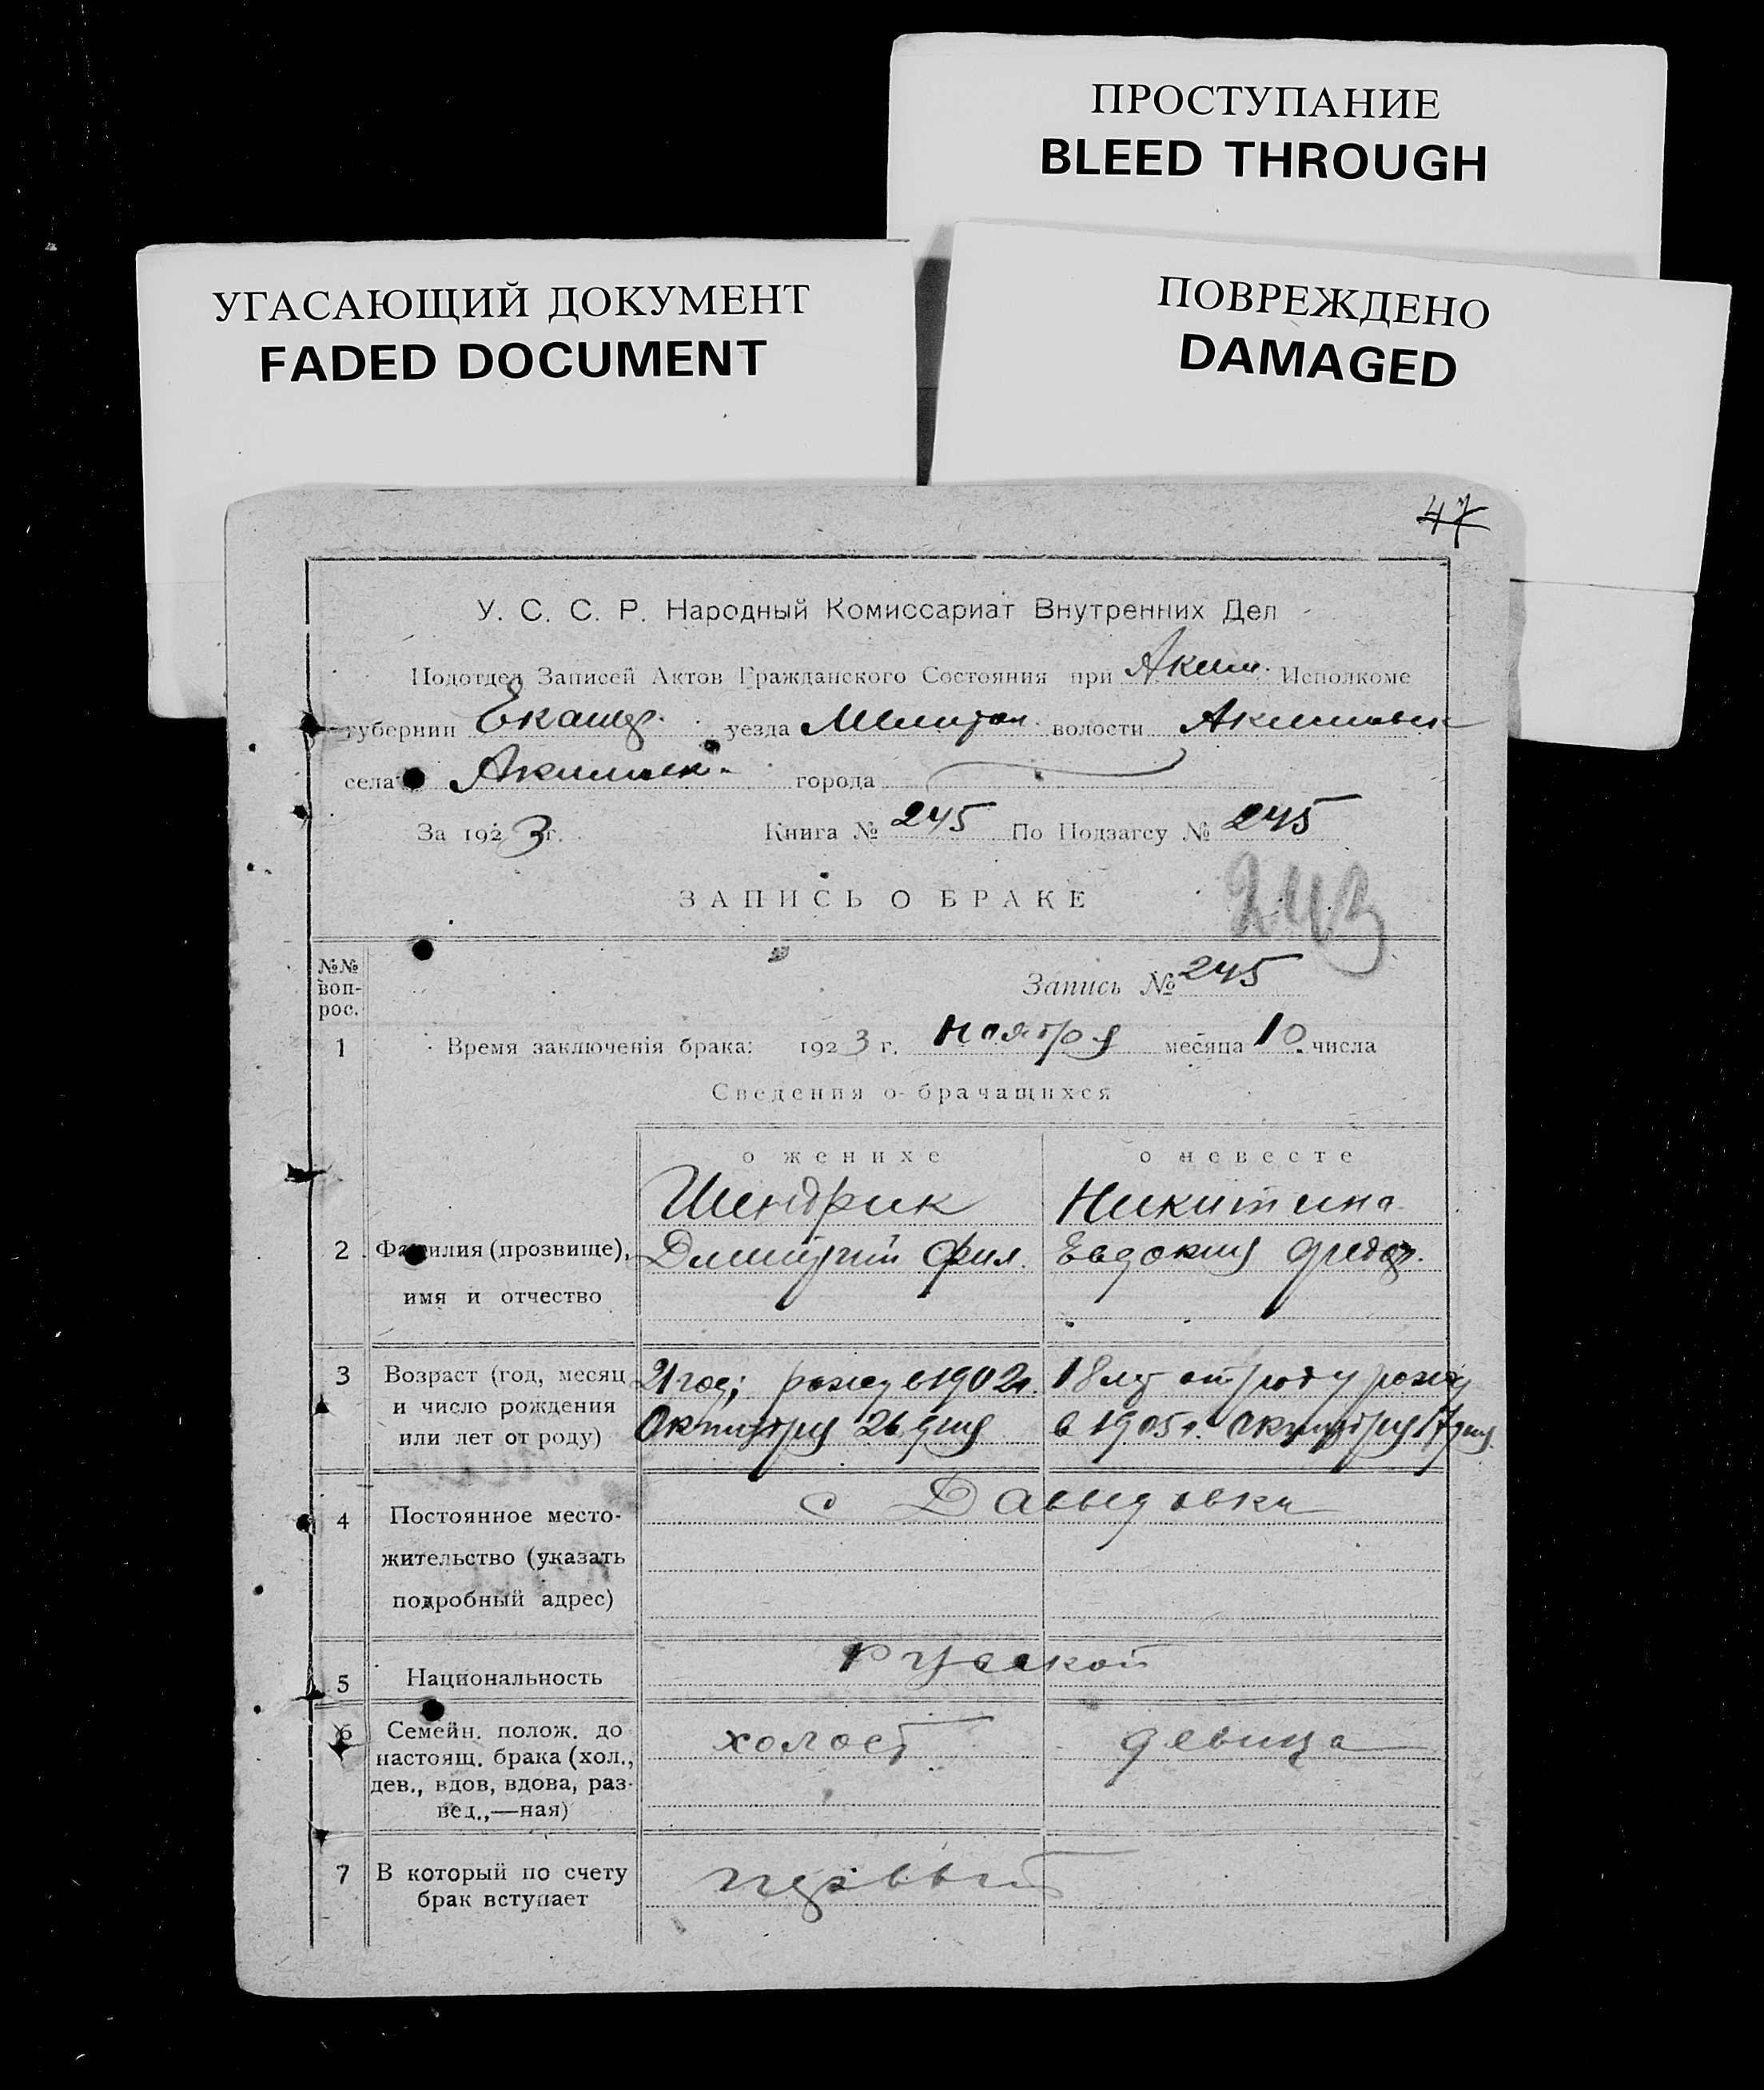 ПРОСТУПАНИЕ
BLEED THROUGH
УГАСАЮЩИЙ ДОКУМЕНТ
FADED DOCUMENT
ПОВРЕЖДЕНО
DAMAGED
47
У. С. С. Р. Народный Комиссариат Внутренних Дел
Подотдел Записей Актов Гражданского Состояния при Аким. Исполкоме
губернии Екатер. уезда Мелитоп. волости Акимовск
села Акимовк. города
За 1923 г. Книга № 245 По Подзагсу № 245
ЗАПИСЬ О БРАКЕ
243
№№ воп- рос.
Запись № 245
1 Время заключенія брака: 1923 г. ноября месяца 10 числа
Сведения о брачащихся
о женихе о невесте
Шендрик Никитина
2 Фамилия (прозвище), имя и отчество
Димитрий Фил. Евдокия Федор.
3 Возраст (год, месяц и число рождения или лет от роду)
21 год; рожд в 1902г. 18 лет от роду рожд
Октября 26 дня в 1905 г. октября 17 дня
4 Постоянное место- жительство (указать подробный адрес)
с Давыдовки
5 Национальность
Русской
6 Семейн. полож. до настоящ. брака (хол., дев., вдов, вдова, раз- вед.,—ная)
холост девица
7 В который по счету брак вступает
первый